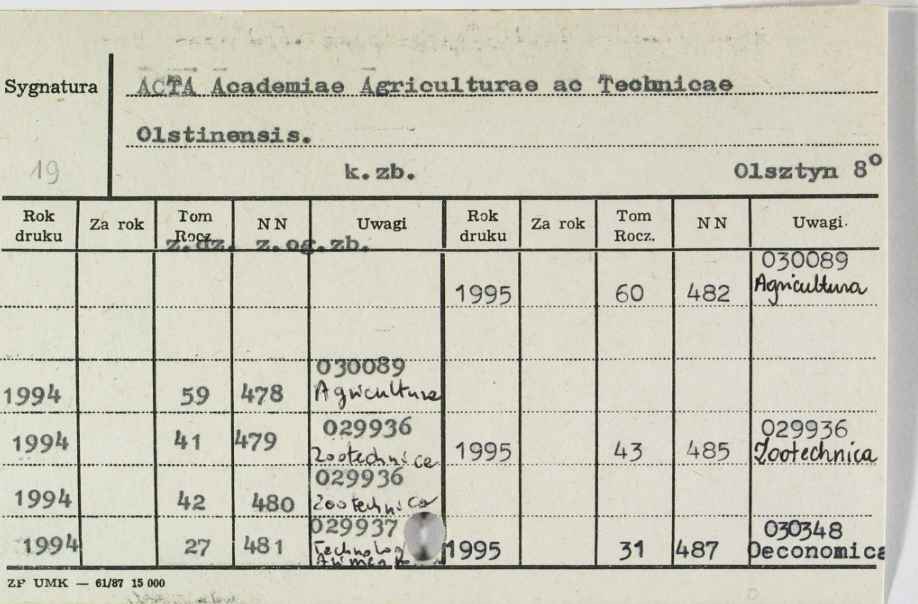 Sygnatura
ACTA Academiae Agriculturae ac Technicae
Olstinensis.
19
k.zb.
Olsztyn 8°
Rok druku Za rok Tom Rocz. N N Uwagi Rok druku Za rok Tom Rocz. N N Uwagi.
z.dz. z.og.zb.
030089
1995 60 482 Agricultura
030089
1994 59 478 Agricultura
029936 029936
1994 41 479 Zootechnica 1995 43 485 Zootechnica
029936
1994 42 480 Zootechnica
029937 030348
1994 27 481 1995 31 487 Oeconomica
ZP UMK — 61/87 15 000